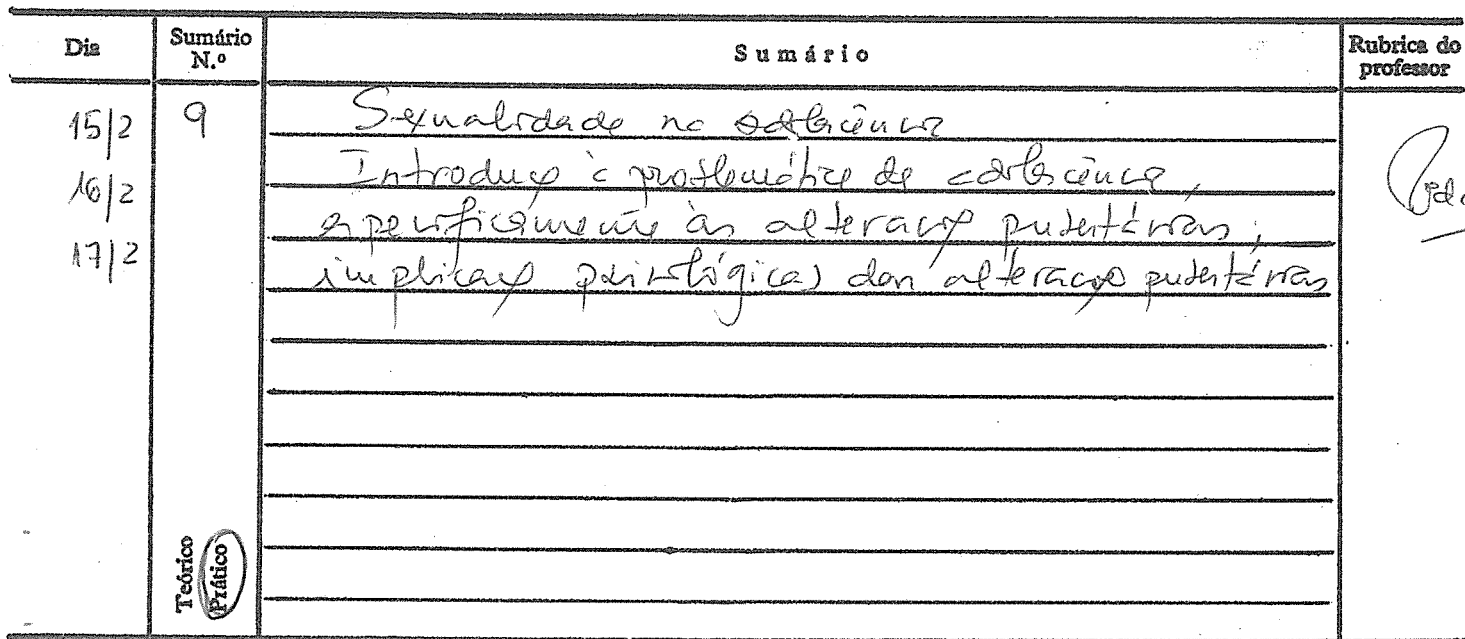 Dia
Sumário N.º
Sumário
Rubrica do professor
15/2 9 Sexualidade na adolescência
16/2 Introdução à problemática da adolescência,
especificamente às alterações pubertárias;
17/2 implicações psicológicas das alterações pubertárias
Teórico
Prático